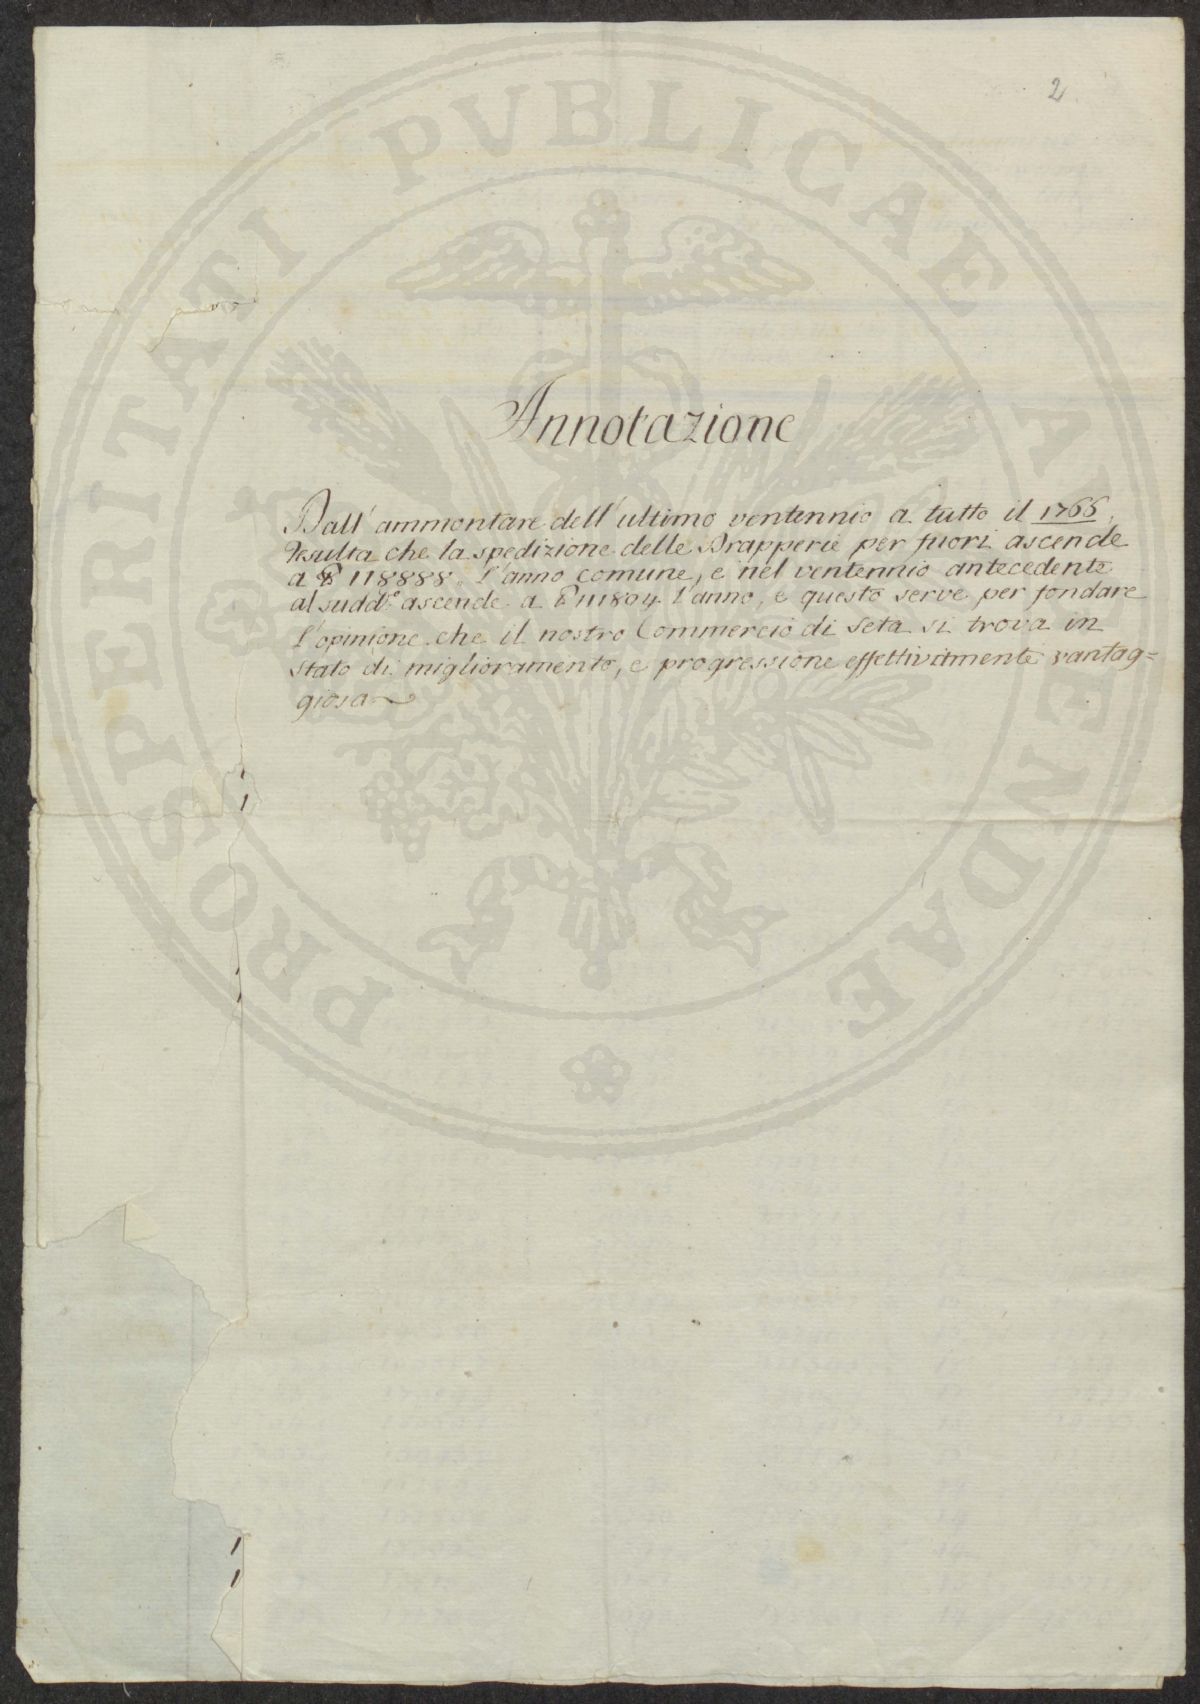 2
Annotazione
Dall' ammontare dell' ultimo ventennio a tutto il 1766,
resulta che la spedizione delle Drapperie per fuori ascende
a ₤ 118888. l'anno comune, e nel ventennio antecedente
al sudd.º ascende a ₤ 111804 l'anno, e questo serve per fondare
l'opinione che il nostro Commercio di seta si trova in
stato di miglioramento, e progressione effettivamente vantag=
giosa
PROSPERITATI PVBLICAE AVGENDAE